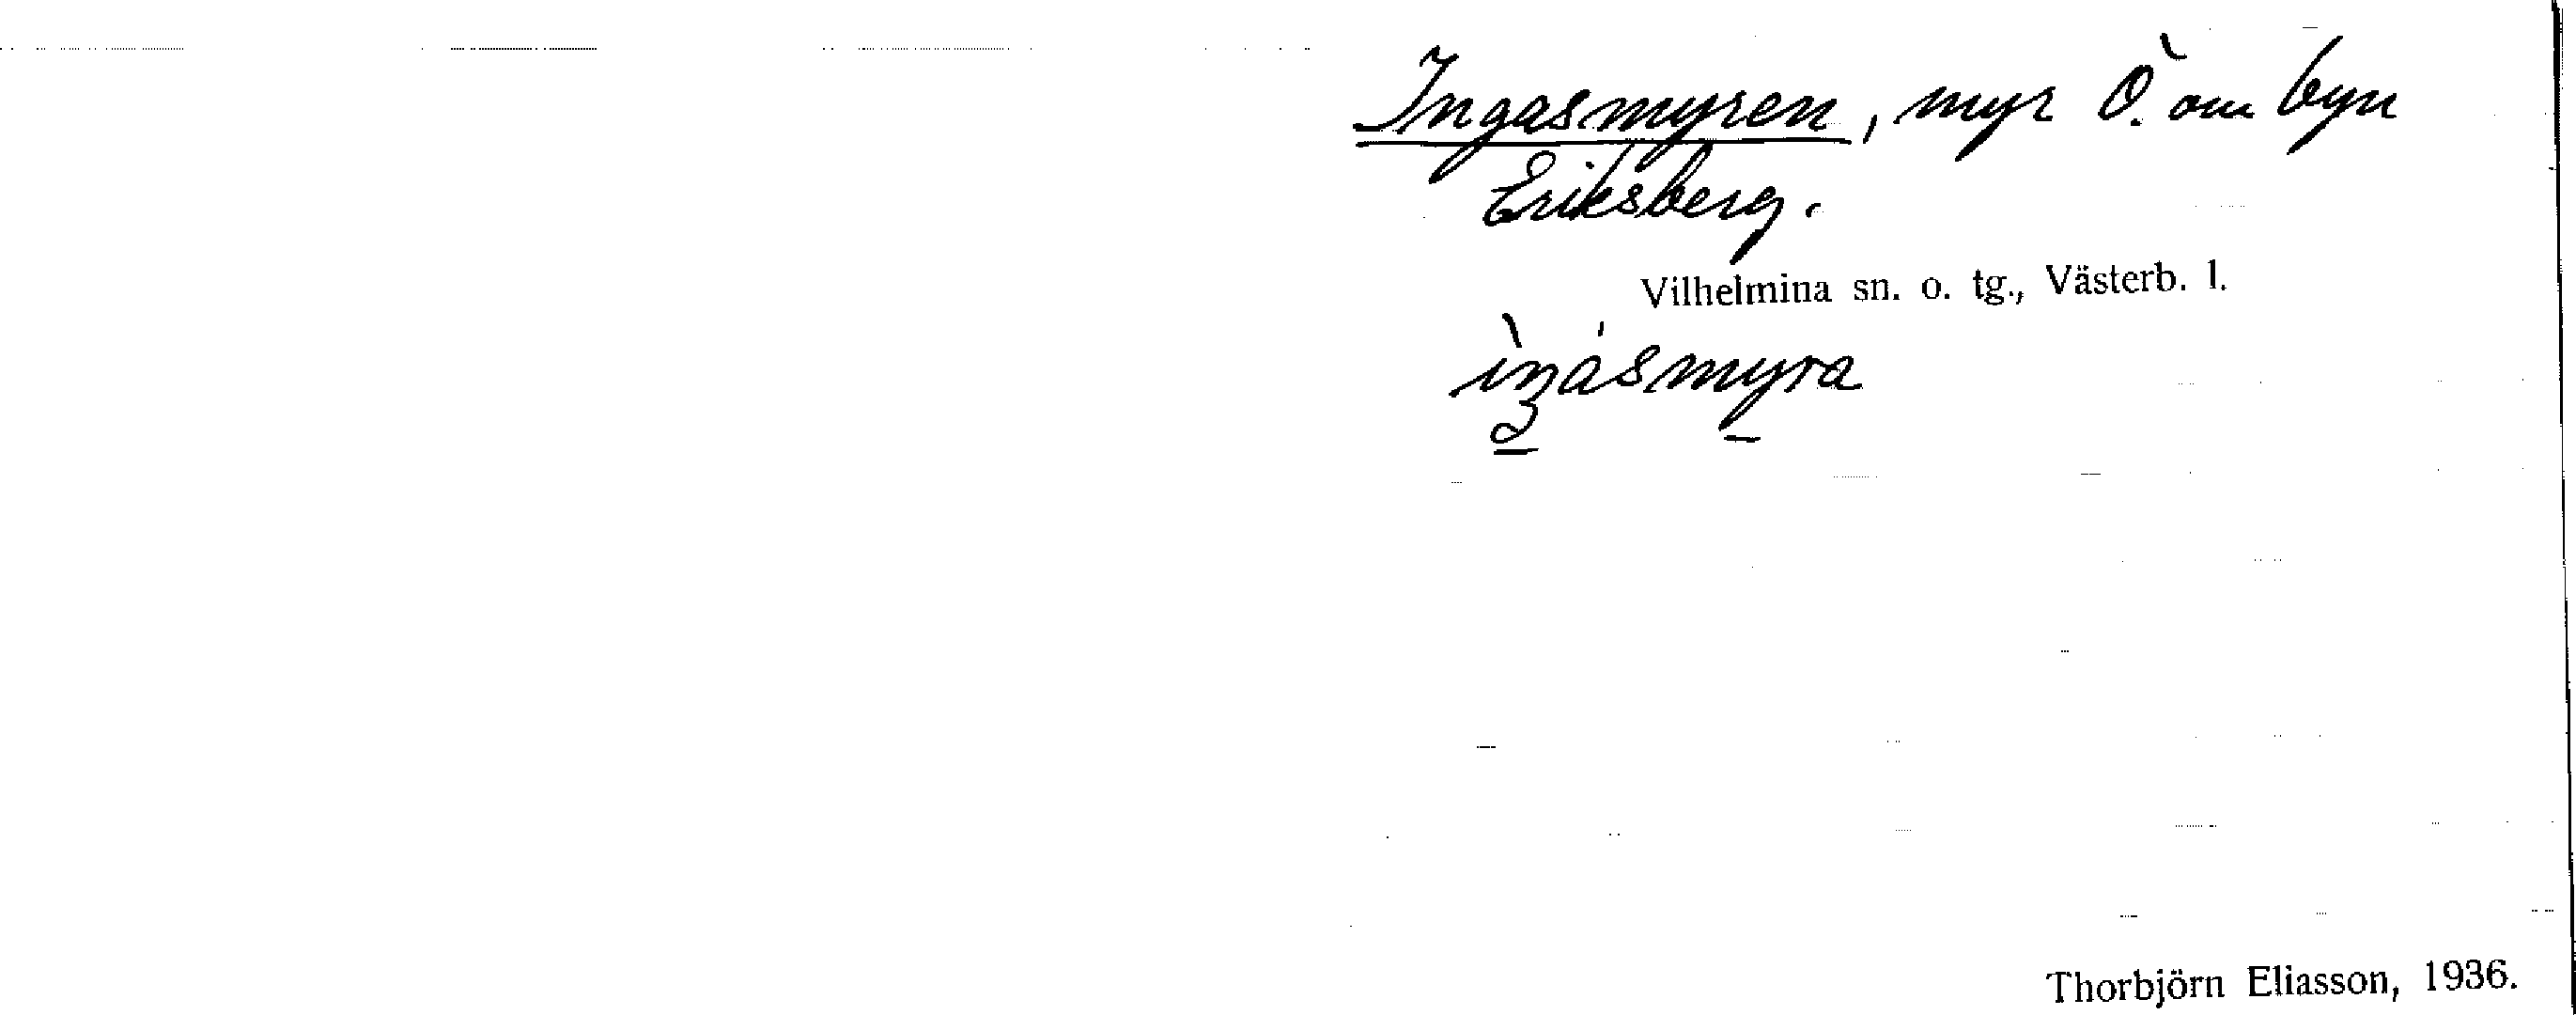 Ingasmyren, myr Ö. om byn
Eriksberg.
Vilhelmina sn. o. tg., Västerb. l.
ìŋásmyra
Thorbjörn Eliasson, 1936.